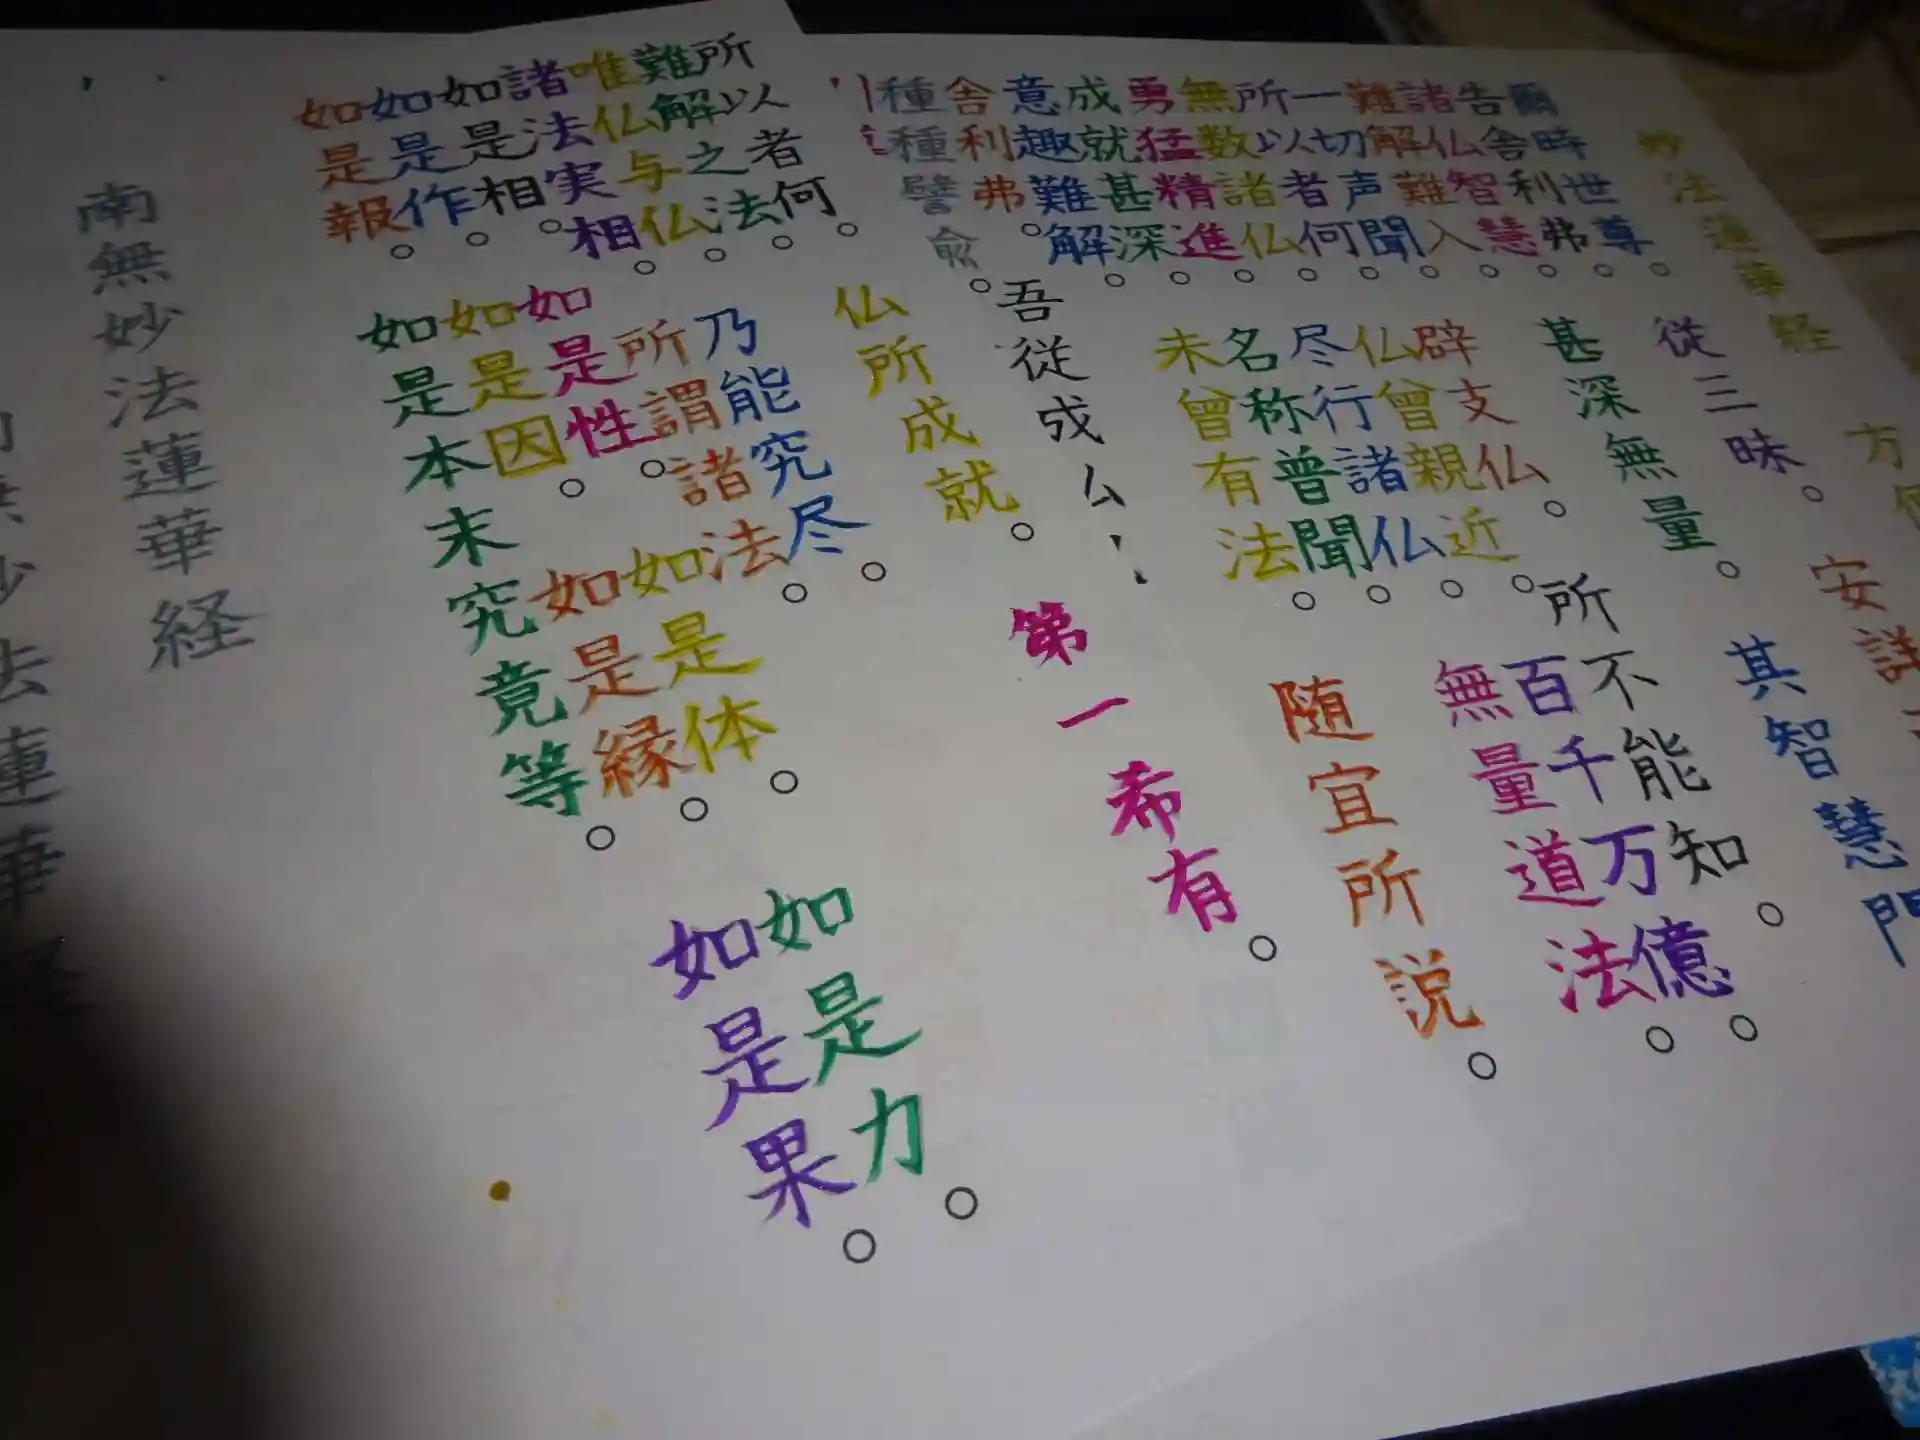 妙法蓮華経 方便
爾時世尊。従三昧。安詳
告舎利弗。
諸仏智慧。甚深無量。其智慧門
難解難入。
一切声聞。辟支仏。所不能知。
所以者何。仏曾親近。百千万億。
無数諸仏。尽行諸仏。無量道法。
勇猛精進。名称普聞。
成就甚深。未曾有法。
意趣難解。随宜所説。
舎利弗。吾従成
種種譬喩。
所以者何。仏所成就。第一希有。
難解之法。
唯仏与仏。乃能究尽。
諸法実相。所謂諸法。
如是相。如是性。如是体。如是力。
如是作。如是因。如是縁。如是果。
如是報。如是本末究竟等。
南無妙法蓮華経
妙法蓮華経